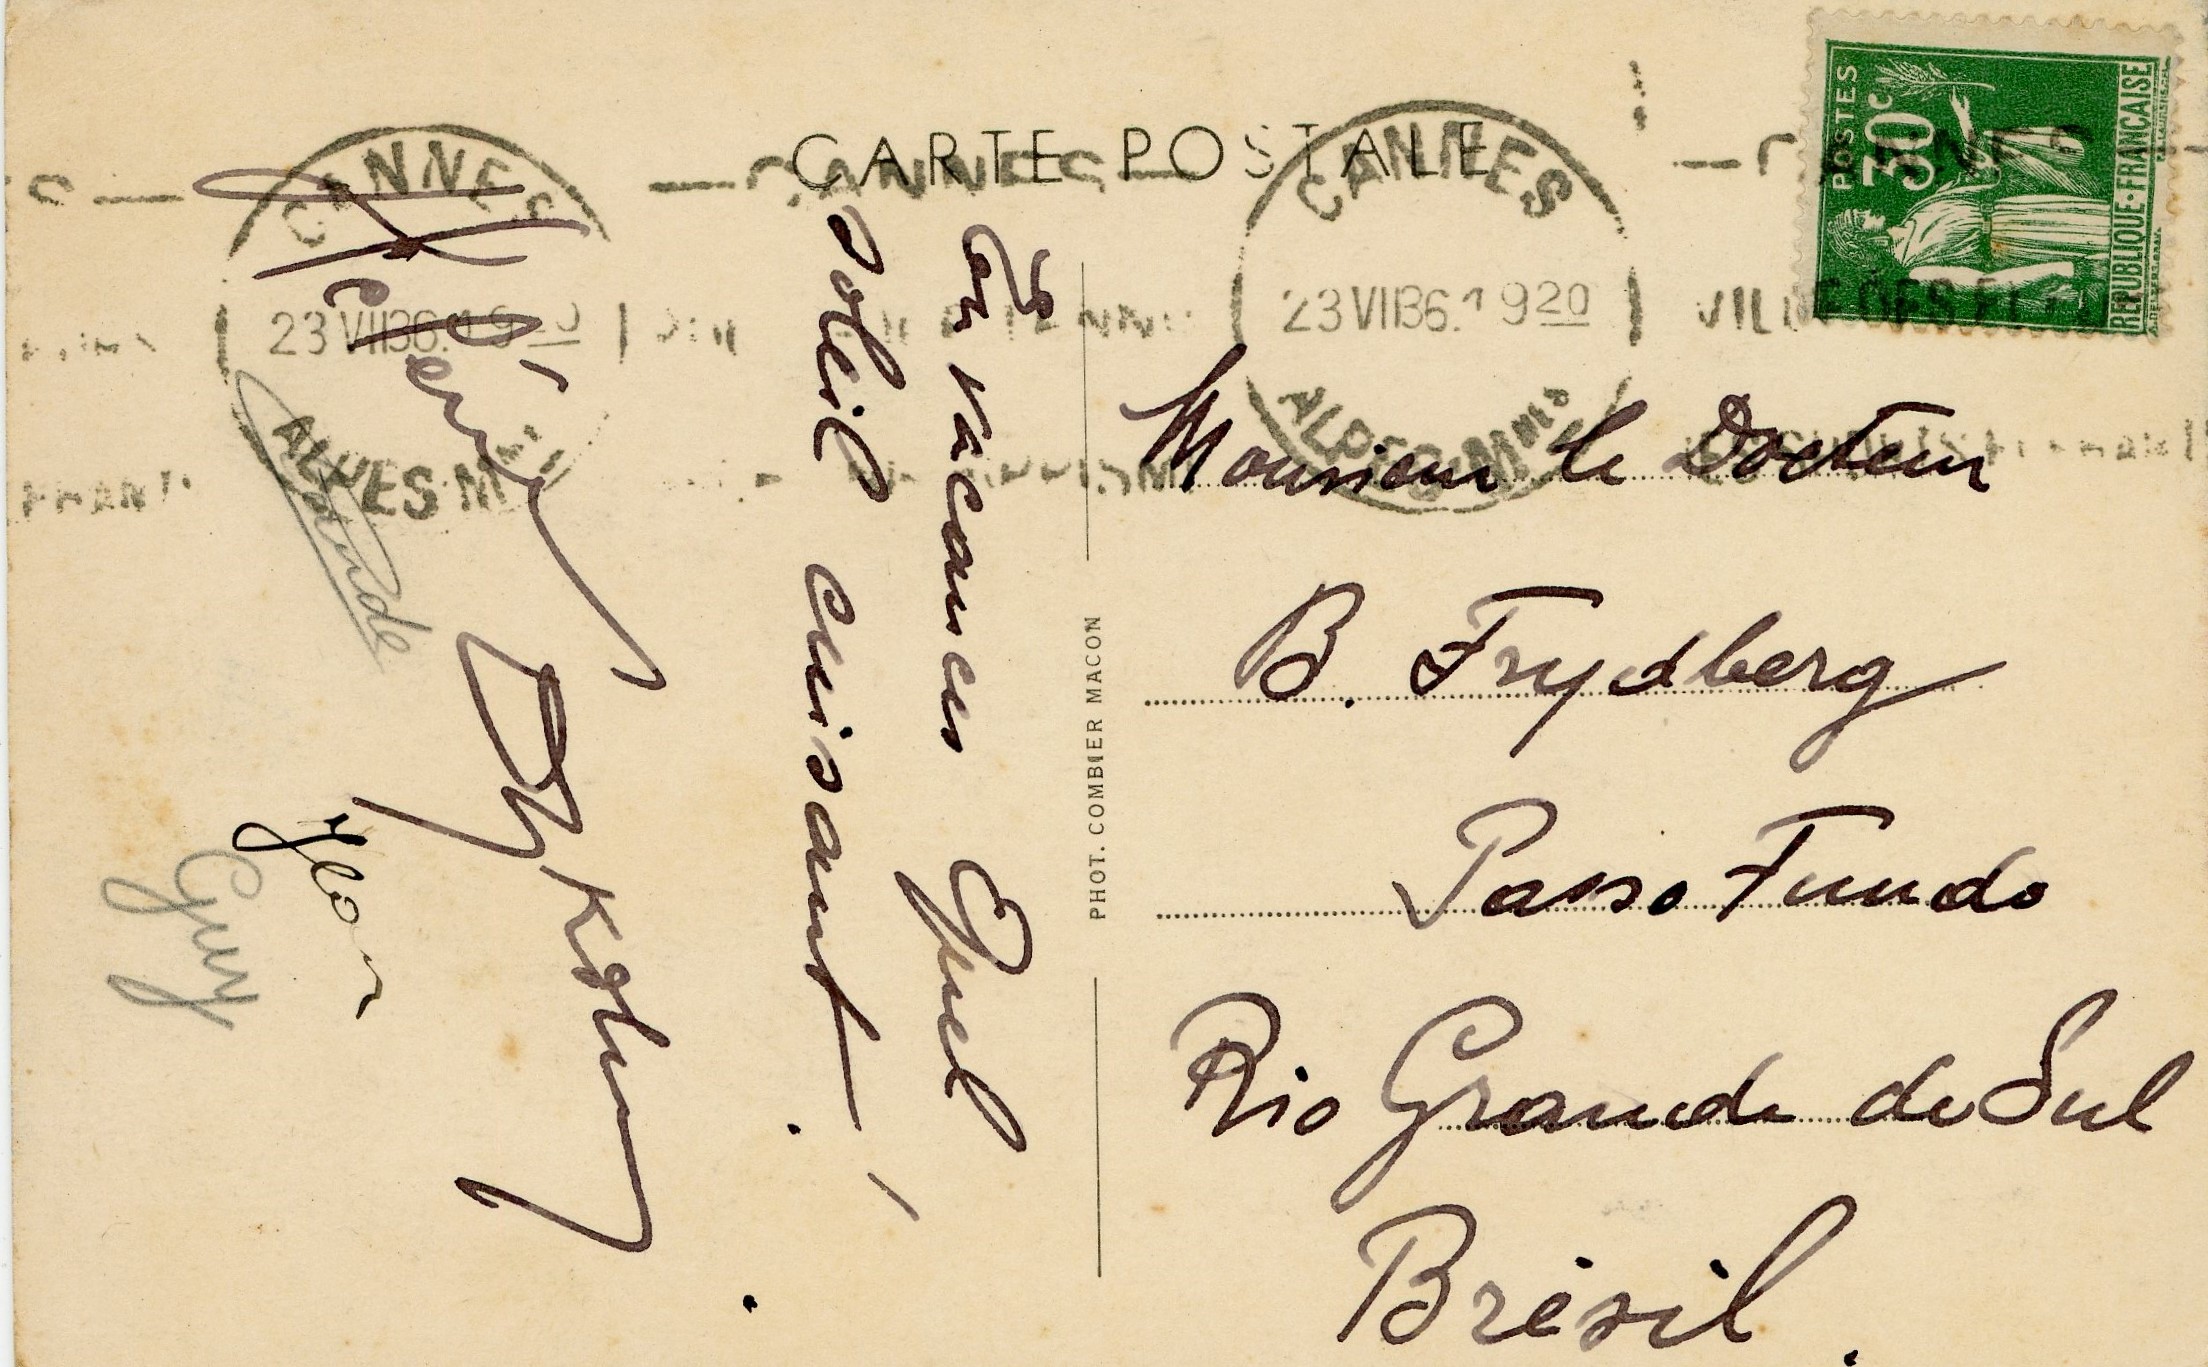 CARTE POSTALE
CANNES
23 VII36.19 20
ALPES-Mmes
CANNES
23 VII36.19 20
ALPES Mmes
POSTES
30c
REPUBLIQUE·FRANÇAISE
En vacances Quel
soleil cuisant!
Guy
PHOT. COMBIER MACON
Monsieur le Docteur
B. Frydberg
Passo Fundo
Rio Grande do Sul
Brésil.